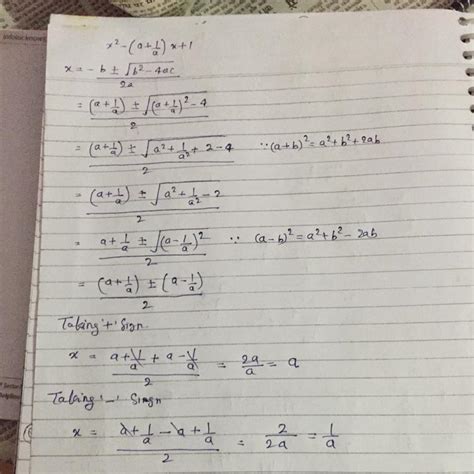 x² - (a + 1/a) x + 1
x = -b ± √(b² - 4ac) / 2a
= (a + 1/a) ± √((a + 1/a)² - 4) / 2
= (a + 1/a) ± √(a² + 1/a² + 2 - 4) / 2 ∵ (a+b)² = a² + b² + 2ab
= (a + 1/a) ± √(a² + 1/a² - 2) / 2
= a + 1/a ± √((a - 1/a)²) / 2 ∵ (a-b)² = a² + b² - 2ab
= (a + 1/a) ± (a - 1/a) / 2
Taking '+' Sign
x = a + 1/a + a - 1/a / 2 = 2a/a = a
Taking '-' Sign
x = a + 1/a - a + 1/a / 2 = 2/2a = 1/a